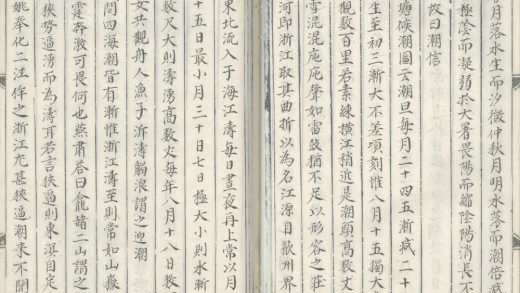 月落水生而汐微仲秋月明水落而潮倍減
極陰而凝弱於大暑畏陽而縮陰陽消長不
故曰潮信
塘候潮圖云潮旦每月二十四五漸減二十
生至初三漸大不差頃刻惟八月十五獨大
觀數百里若素練橫江稍近是潮頭高數丈
雪混混庉庉聲如雷鼓猶不足以形容之莊
河即浙江取其曲折以為名江源自歙州界
東北流入于海江濤每日晝夜再上常以月
十五日最小月三十日七極大小則水漸
數尺大則濤湧高數丈每年八月十八日數
女共觀舟人漁子泝濤觸浪謂之迎潮
問四海潮皆有漸惟浙江濤至則常如山嶽
霆奔激可畏何也燕肅荅曰龕赭二山謂之
狹勢逼湧而為濤耳若言狹逼則東溟自定
姚奉化二江侔之浙江尤甚狹逼潮來不聞